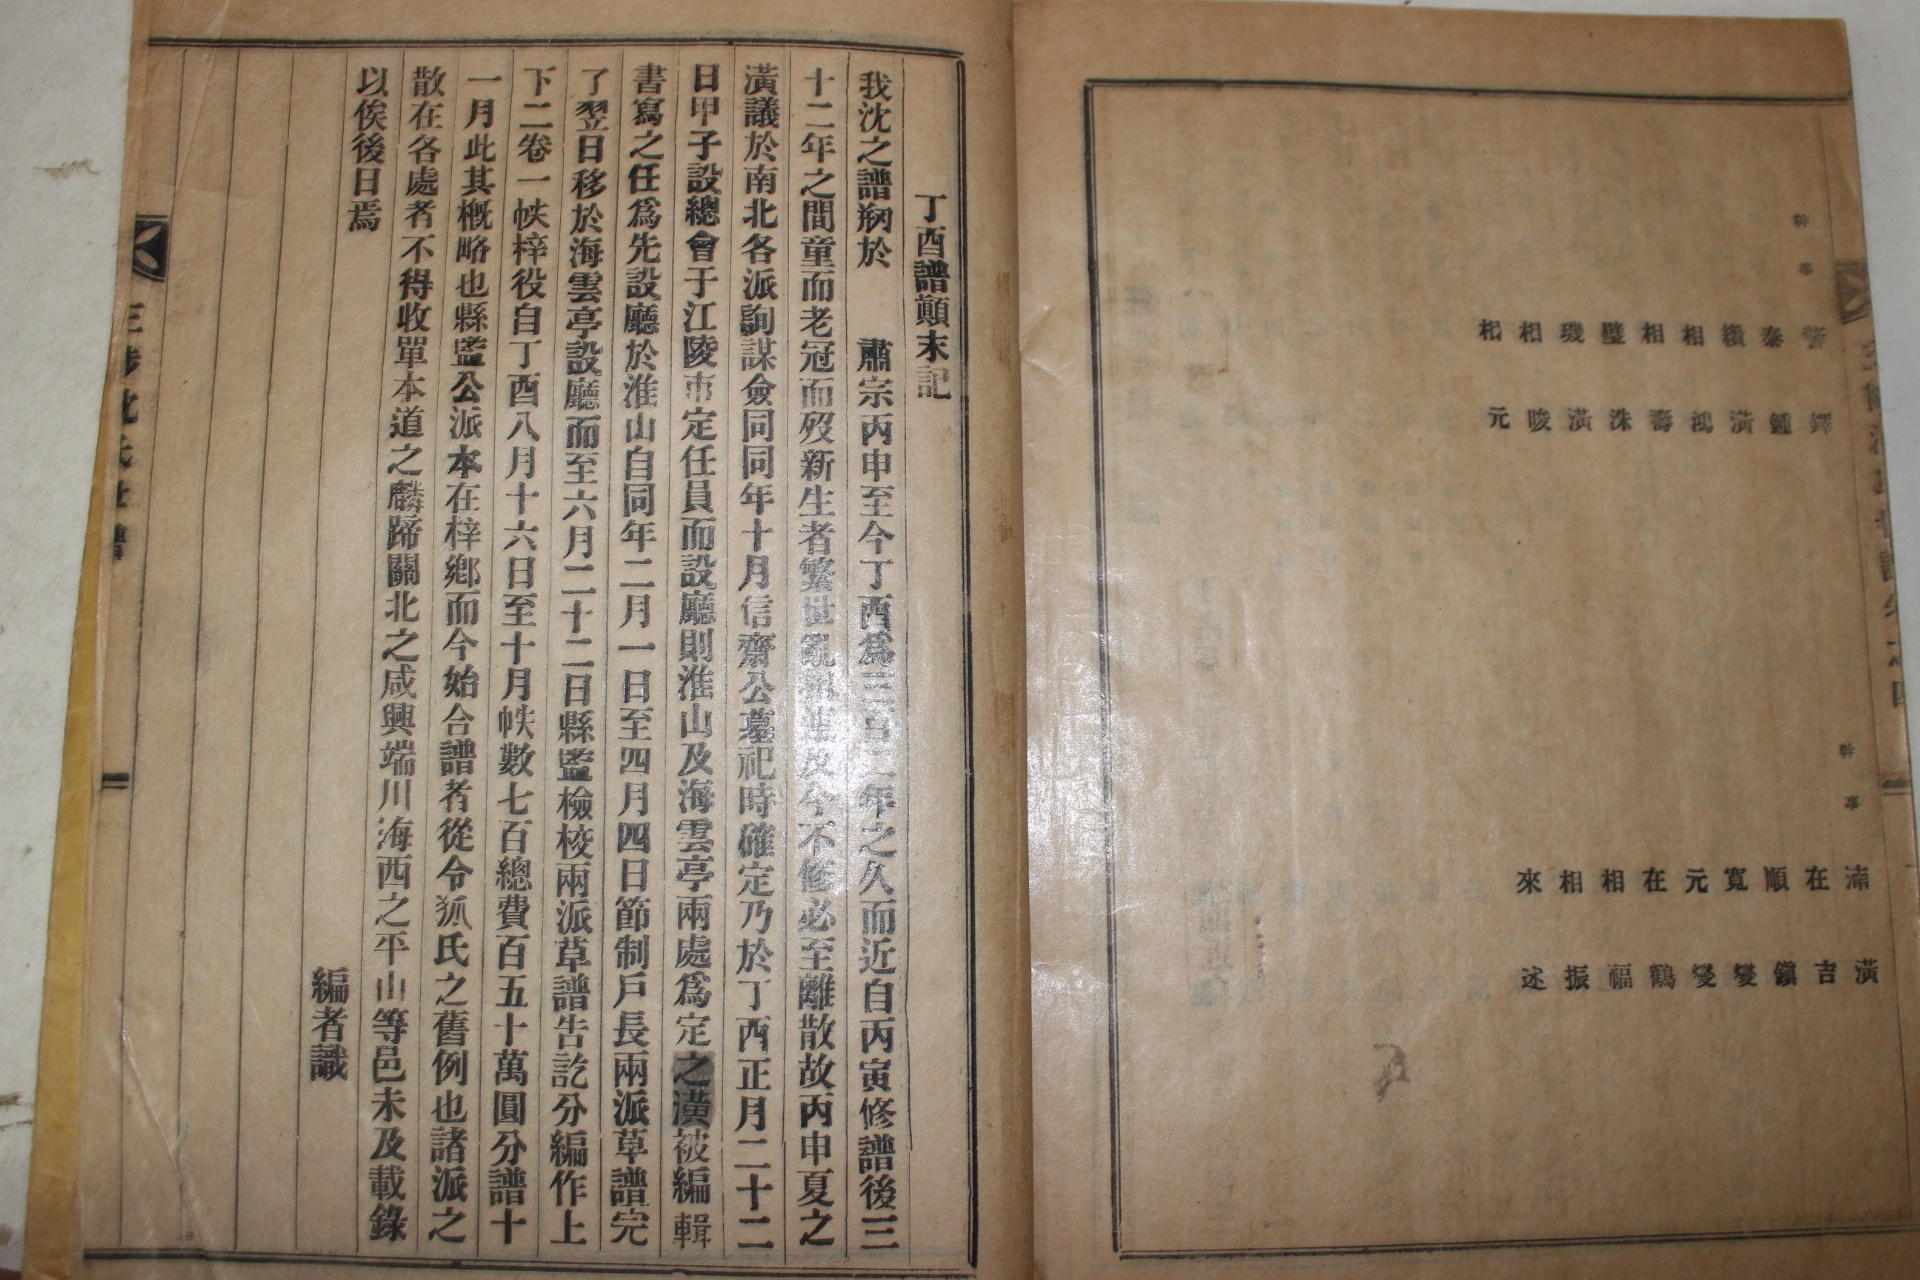 幹事
鐸
鍾
潢
鴻
壽
洙
潢
晙
元
泰
纘
相
相
璧
璣
相
相
幹事
湳潢
在吉
順鎭
寬燮
元燮
在鶴
相福
相振
來述
丁酉譜顚末記
我沈之譜刱於 肅宗丙申至今丁酉爲三百二年之久而近自丙寅修譜後三
十二年之間童而老冠而歿新生者繁世亂
及今不修必至離散故丙申夏之
潢議於南北各派詢謀僉同同年十月信齋公墓祀時確定乃於丁酉正月二十二
日甲子設總會于江陵市定任員而設廳則淮山及海雲亭兩處爲定之潢被編輯
書寫之任爲先設廳於淮山自同年二月一日至四月四日節制戶長兩派草譜完
了翌日移於海雲亭設廳而至六月二十二日縣監檢校兩派草譜告訖分編作上
下二卷一帙梓役自丁酉八月十六日至十月帙數七百總費百五十萬圓分譜十
一月此其槪略也縣監公派本在梓鄕而今始合譜者從令狐氏之舊例也諸派之
散在各處者不得收單本道之麟蹄關北之咸興端川海西之平山等邑未及載錄
以俟後日焉
編者識
三陟沈氏世譜